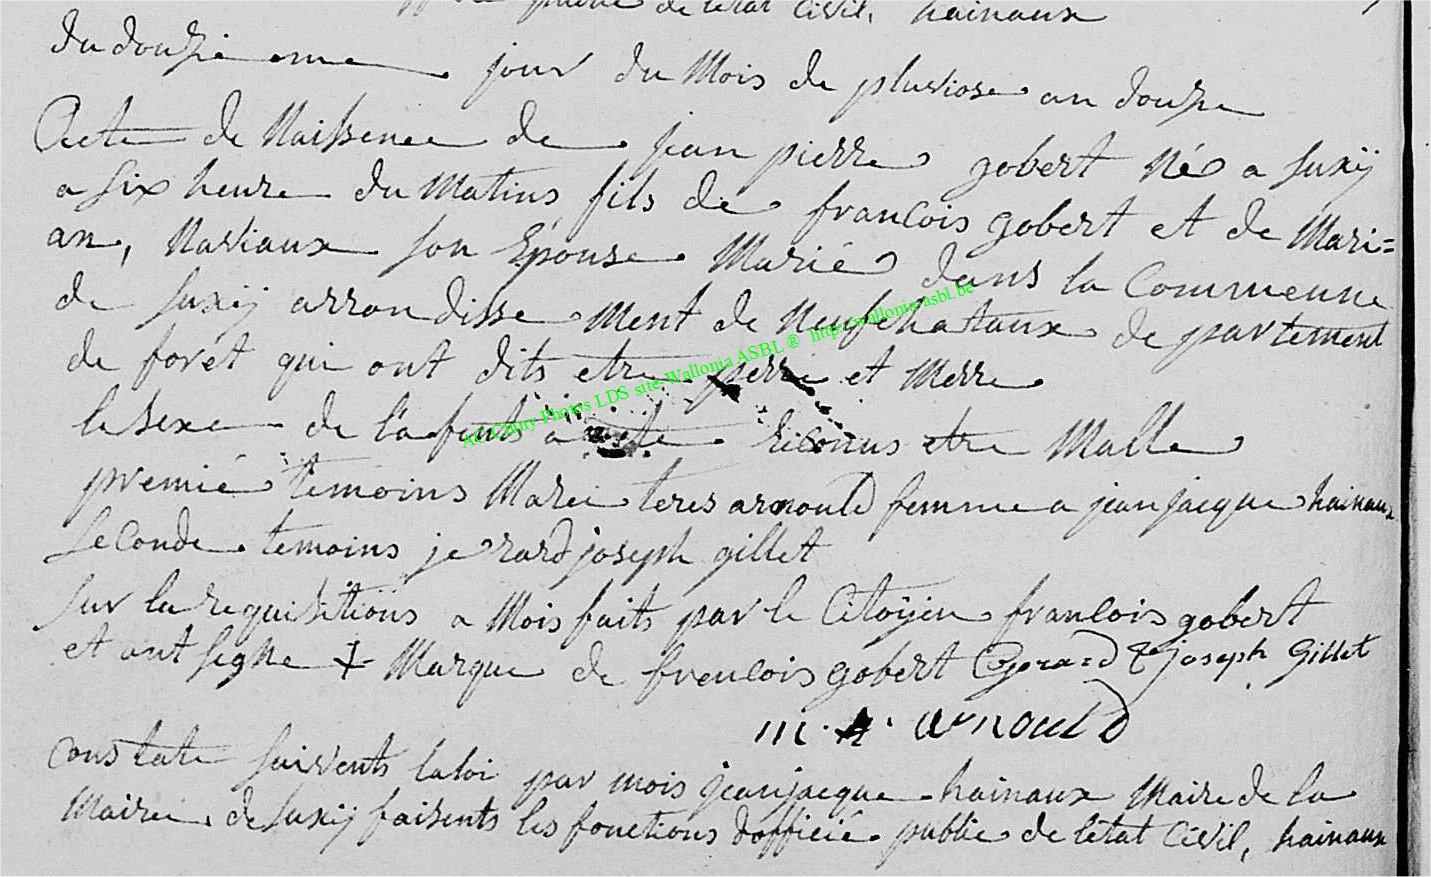 public de letat Civil, hainaux
du douzieme jour du Mois de pluviose an douze
Acte de Naissence de jean pierre gobert Né a Suxÿ
a six heure du Matins fils de francois gobert et de Mari=
an, Naviaux son Epouse Marié dans la Commeune
de Suxÿ arrondisse Ment de Neufchataux de partement
de forét qui ont dits etre perre et Merre
le sexe de lafents a ete Reconus etre Malle
premié temoins Marei teres arnould femme a jean jacque hainaux
Seconde temoins jerard joseph gillet
sur la requisitions a Mois faits par le Citoÿen francois gobert
et ont signe Marque de frencois gobert Gerard Joseph Gillet
m. t. arnould
Constate suivents la loi par mois jean jacque hainaux Maire de la
Mairei de Suxÿ faisents les fonctions dofficié public de létat Civil, hainaux
Photos LDS site Wallonia ASBL ® http://wallonia-asbl.be